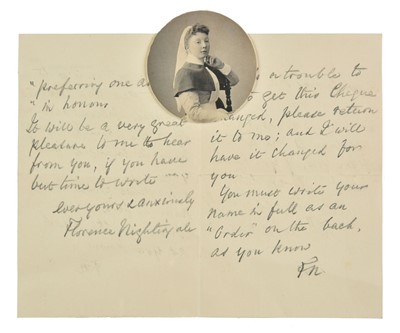 "preferring one an
"in honour
It will be a very great
pleasure to me to hear
from you, if you have
but time to write
ever yours & anxiously
Florence Nightingale
a trouble to
to get this Cheque
changed, please return
it to me; and I will
have it changed for
you
You must write your
name in full as an
"Order" on the back,
as you know
FN